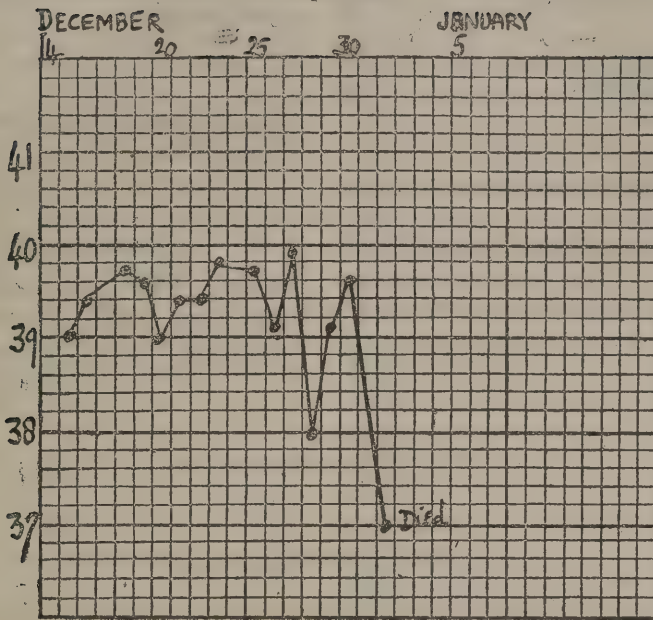 DECEMBER JANUARY
14 20 25 30 5
41
40
39
38
37
Died